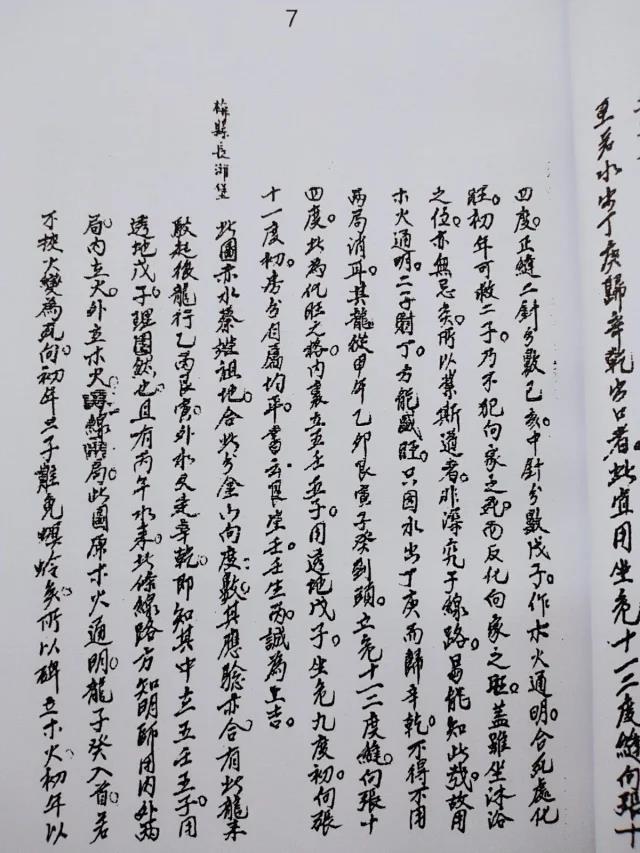 7
至若水出丁庚歸辛乾出口者。此宜用坐危十一二度縫向張十
四度。正縫二針分數己亥。中針分數戊子。作木火通明。合死處化
旺。初年可救二子。乃不犯向家之死。而反化向家之旺。蓋雖坐沐浴
之位。亦無忌矣。所以業斯道者。非深究于線路。曷能知此哉。故用
木火通明。二子財丁方能盛旺。只因水出丁庚而歸辛乾不得不用
兩局消耳。其龍從甲午乙卯艮寅子癸到頭。立危十一二度縫向張十
四度。此為化旺之格。內裏立五壬五子用透地戊子。坐危九度初向張
十一度初。房分局屬均平。書云艮崖壬壬生芮。誠為上吉。
梅縣長灘堡
此圖亦水蔡灘祖地。合此分金山向度數。其應驗亦合。有此龍來
殿起後龍行乙丙艮寅。外水又走辛乾。即知其中立五壬五子用
透地戊子理固然也。且有丙午水來。此條線路方知明師用內外兩
局。內立火。外立木火。線兩局。此圖原木火通明。龍子癸入首。若
不按火變為死向。初年二子難免螟蛉矣。所以碑立木火。初年以